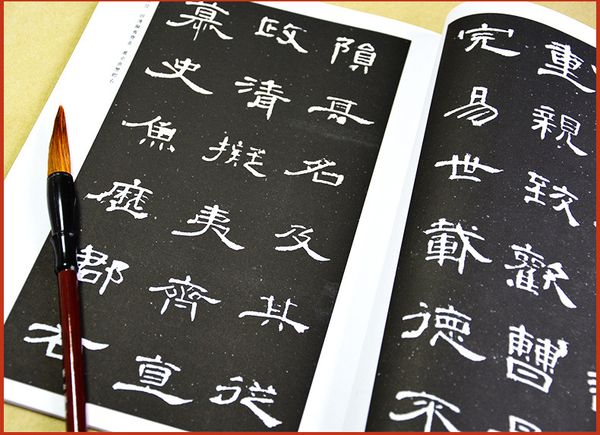 重親致歡曹
完易世載德不
隕其名及其從
政清擬夷齊直
慕史魚歷郡右